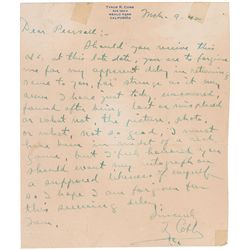 TYRUS R. COBB
MENLO PARK
CALIFORNIA
Mch. 9
Dear Pursell:-
Should you receive this
at this late date, you are to forgive
me for my apparent delay in returning
same to you for strange as it may
seem, I have just today, uncovered
found after being lost or misplaced
or what not, the picture, photo,
or what, not so good, I must
have been in midst of a rich
game, but I feel honored you
should want my autograph on
a supposed likeness of myself
so I hope I am forgiven for
this seeming delay
I am,
Sincerely
Cobb